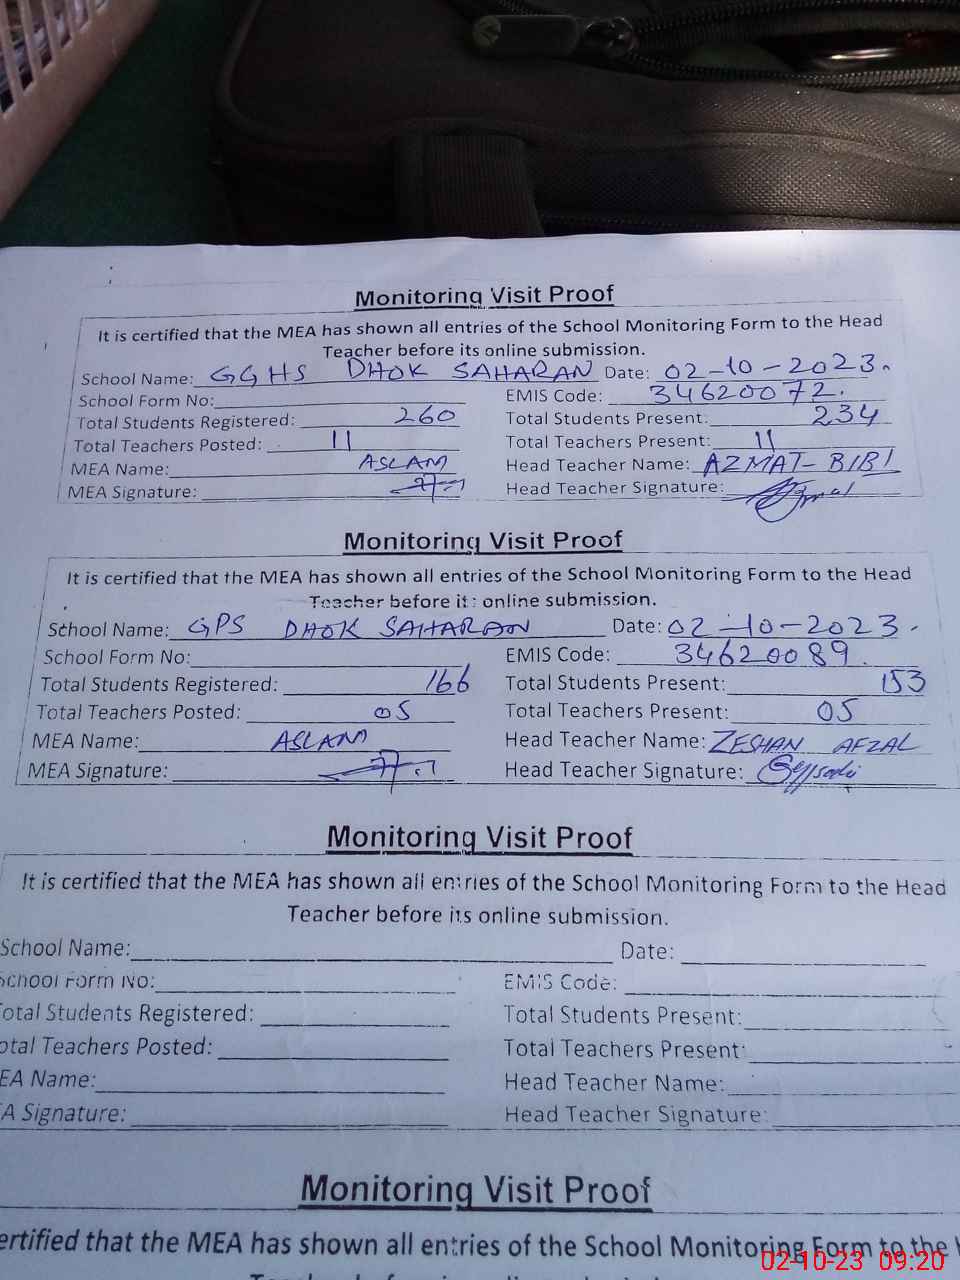 Monitoring Visit Proof
It is certified that the MEA has shown all entries of the School Monitoring Form to the Head
Teacher before its online submission.
School Name: GGHS DHOK SAHARAN Date: 02-10-2023.
School Form No: EMIS Code: 34620072.
Total Students Registered: 260 Total Students Present: 234
Total Teachers Posted: 11 Total Teachers Present: 11
MEA Name: ASLAM Head Teacher Name: AZMAT-BIBI
MEA Signature: Head Teacher Signature:
Monitoring Visit Proof
It is certified that the MEA has shown all entries of the School Monitoring Form to the Head
Teacher before its online submission.
School Name: GPS DHOK SAHARAN Date: 02-10-2023.
School Form No: EMIS Code: 34620089.
Total Students Registered: 166 Total Students Present: 153
Total Teachers Posted: 05 Total Teachers Present: 05
MEA Name: ASLAM Head Teacher Name: ZESHAN AFZAL
MEA Signature: Head Teacher Signature:
Monitoring Visit Proof
It is certified that the MEA has shown all entries of the School Monitoring Form to the Head
Teacher before its online submission.
School Name: Date:
School Form No: EMIS Code:
otal Students Registered: Total Students Present:
otal Teachers Posted: Total Teachers Present:
EA Name: Head Teacher Name:
A Signature: Head Teacher Signature:
Monitoring Visit Proof
ertified that the MEA has shown all entries of the School Monitoring Form to the H
02-10-23 09:20